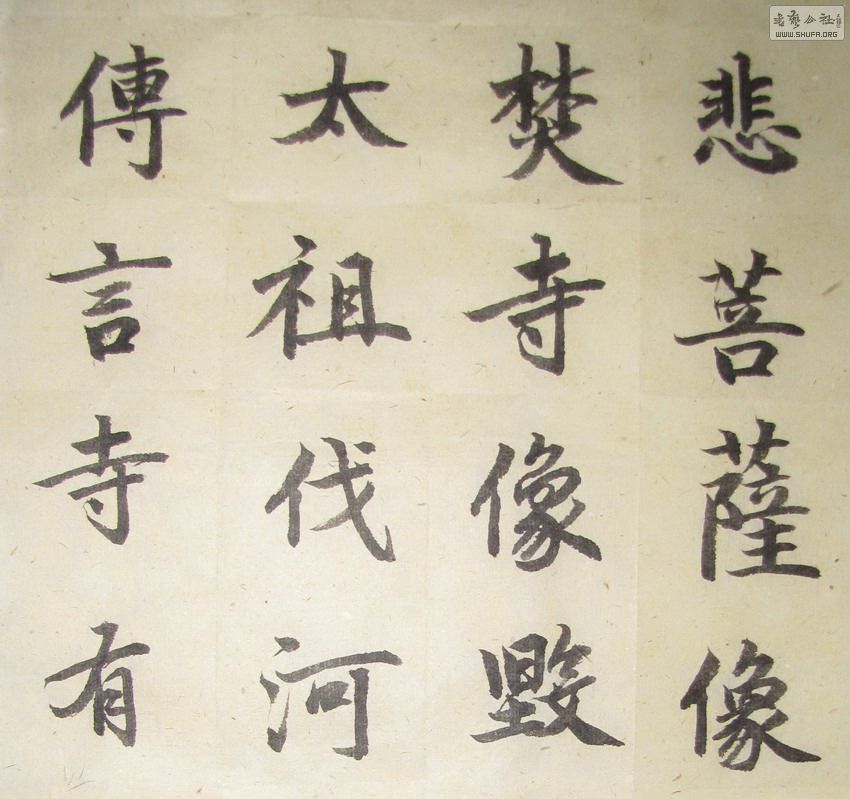 悲菩薩像
焚寺像毀
太祖伐河
傳言寺有
書藝公社
WWW.SHUFA.ORG